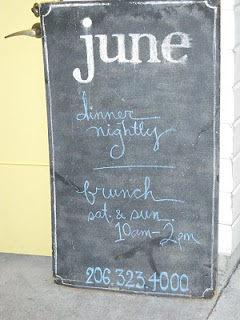 june
dinner
nightly
brunch
sat. & sun.
10am-2pm
206.323.4000